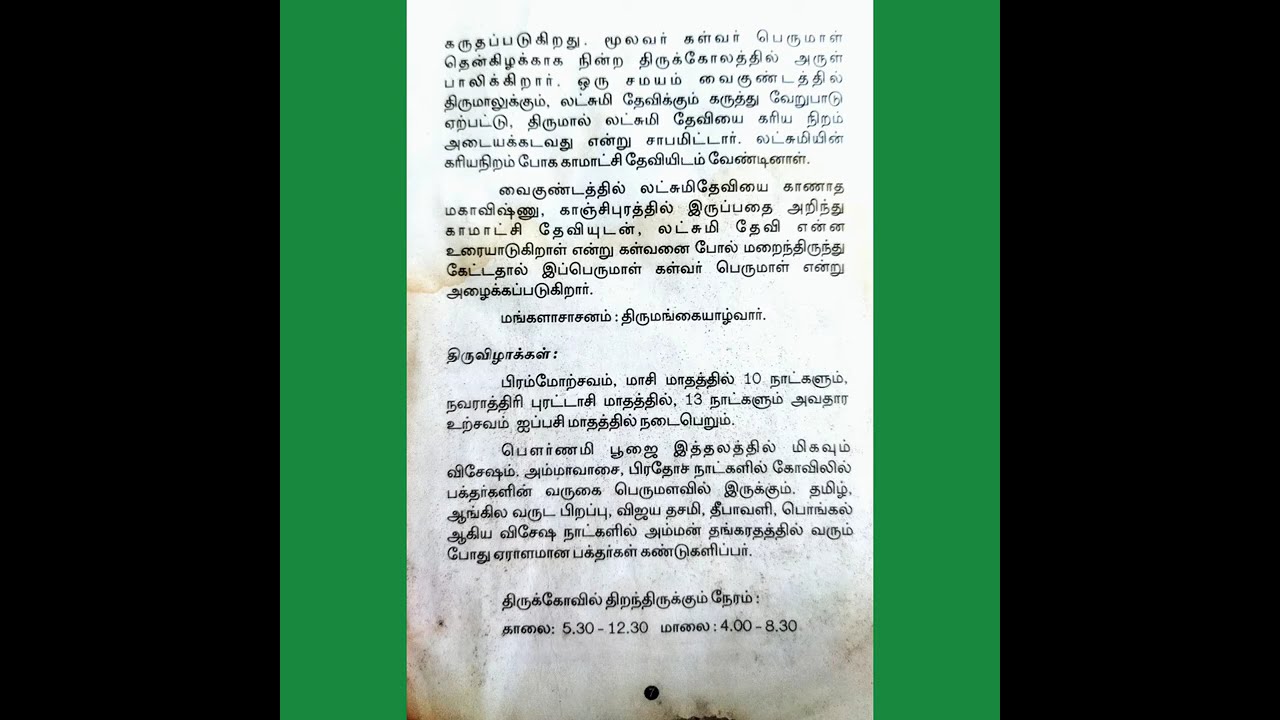 கருதப்படுகிறது. மூலவர் கள்வர் பெருமாள்
தென்கிழக்காக நின்ற திருக்கோலத்தில் அருள்
பாலிக்கிறார். ஒரு சமயம் வைகுண்டத்தில்
திருமாலுக்கும், லட்சுமி தேவிக்கும் கருத்து வேறுபாடு
ஏற்பட்டு, திருமால் லட்சுமி தேவியை கரிய நிறம்
அடையக்கடவது என்று சாபமிட்டார். லட்சுமியின்
கரியநிறம் போக காமாட்சி தேவியிடம் வேண்டினாள்.
வைகுண்டத்தில் லட்சுமிதேவியை காணாத
மகாவிஷ்ணு, காஞ்சிபுரத்தில் இருப்பதை அறிந்து
காமாட்சி தேவியுடன், லட்சுமி தேவி என்ன
உரையாடுகிறாள் என்று கள்வனை போல் மறைந்திருந்து
கேட்டதால் இப்பெருமாள் கள்வர் பெருமாள் என்று
அழைக்கப்படுகிறார்.
மங்களாசாசனம் : திருமங்கையாழ்வார்.
திருவிழாக்கள் :
பிரம்மோற்சவம், மாசி மாதத்தில் 10 நாட்களும்,
நவராத்திரி புரட்டாசி மாதத்தில், 13 நாட்களும் அவதார
உற்சவம் ஐப்பசி மாதத்தில் நடைபெறும்.
பௌர்ணமி பூஜை இத்தலத்தில் மிகவும்
விசேஷம். அம்மாவாசை, பிரதோச நாட்களில் கோவிலில்
பக்தர்களின் வருகை பெருமளவில் இருக்கும். தமிழ்,
ஆங்கில வருட பிறப்பு, விஜய தசமி, தீபாவளி, பொங்கல்
ஆகிய விசேஷ நாட்களில் அம்மன் தங்கரதத்தில் வரும்
போது ஏராளமான பக்தர்கள் கண்டுகளிப்பர்.
திருக்கோவில் திறந்திருக்கும் நேரம் :
தாலை: 5.30 - 12.30 மாலை : 4.00 - 8.30
7